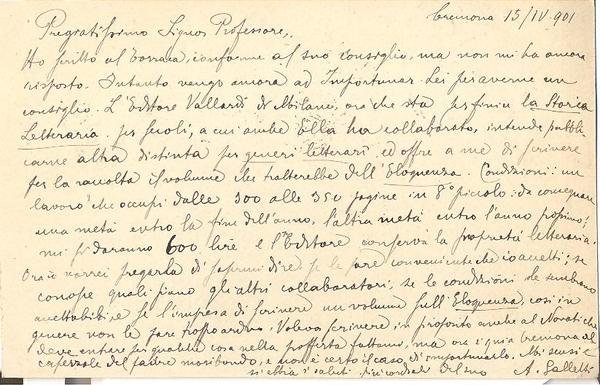 Cremona 15/IV 901
Pregiatissimo Signor Professore,
Ho scritto al Torraca, conforme al suo consiglio, ma non mi ha ancora
risposto. Intanto vengo ancora ad importunar Lei per averne un
consiglio. L'Editore Vallardi di Milano, ora che sta per finire la Storia
Letteraria per secoli, a cui anche Ella ha collaborato, intende pubbli
carne altra distinta per generi letterari ed offre a me di scrivere
per la raccolta il volume che tratterebbe dell'Eloquenza. Condizioni: un
lavoro che occupi dalle 300 alle 350 pagine in 8° piccolo: da consegnare
una metà entro la fine dell'anno, l'altra metà entro l'anno prossimo;
mi si daranno 600 lire e l'Editore conserva la proprietà letteraria.
Ora io vorrei pregarla di sapermi dire se le pare conveniente che io accetti; se
conosce quali siano gli altri collaboratori, se le condizioni le sembrano
accettabili, e se l'impresa di scrivere un volume sull'Eloquenza, così in
genere non le pare troppo ardua. Volevo scrivere in proposito anche al Novati che
deve entrare per qualche cosa nella proffertа fattami, ma ora è qui a Cremona al
capezzale del padre moribondo, e non è certo il caso di importunarlo. Mi scusi e
si abbia i saluti del suo A. Galletti